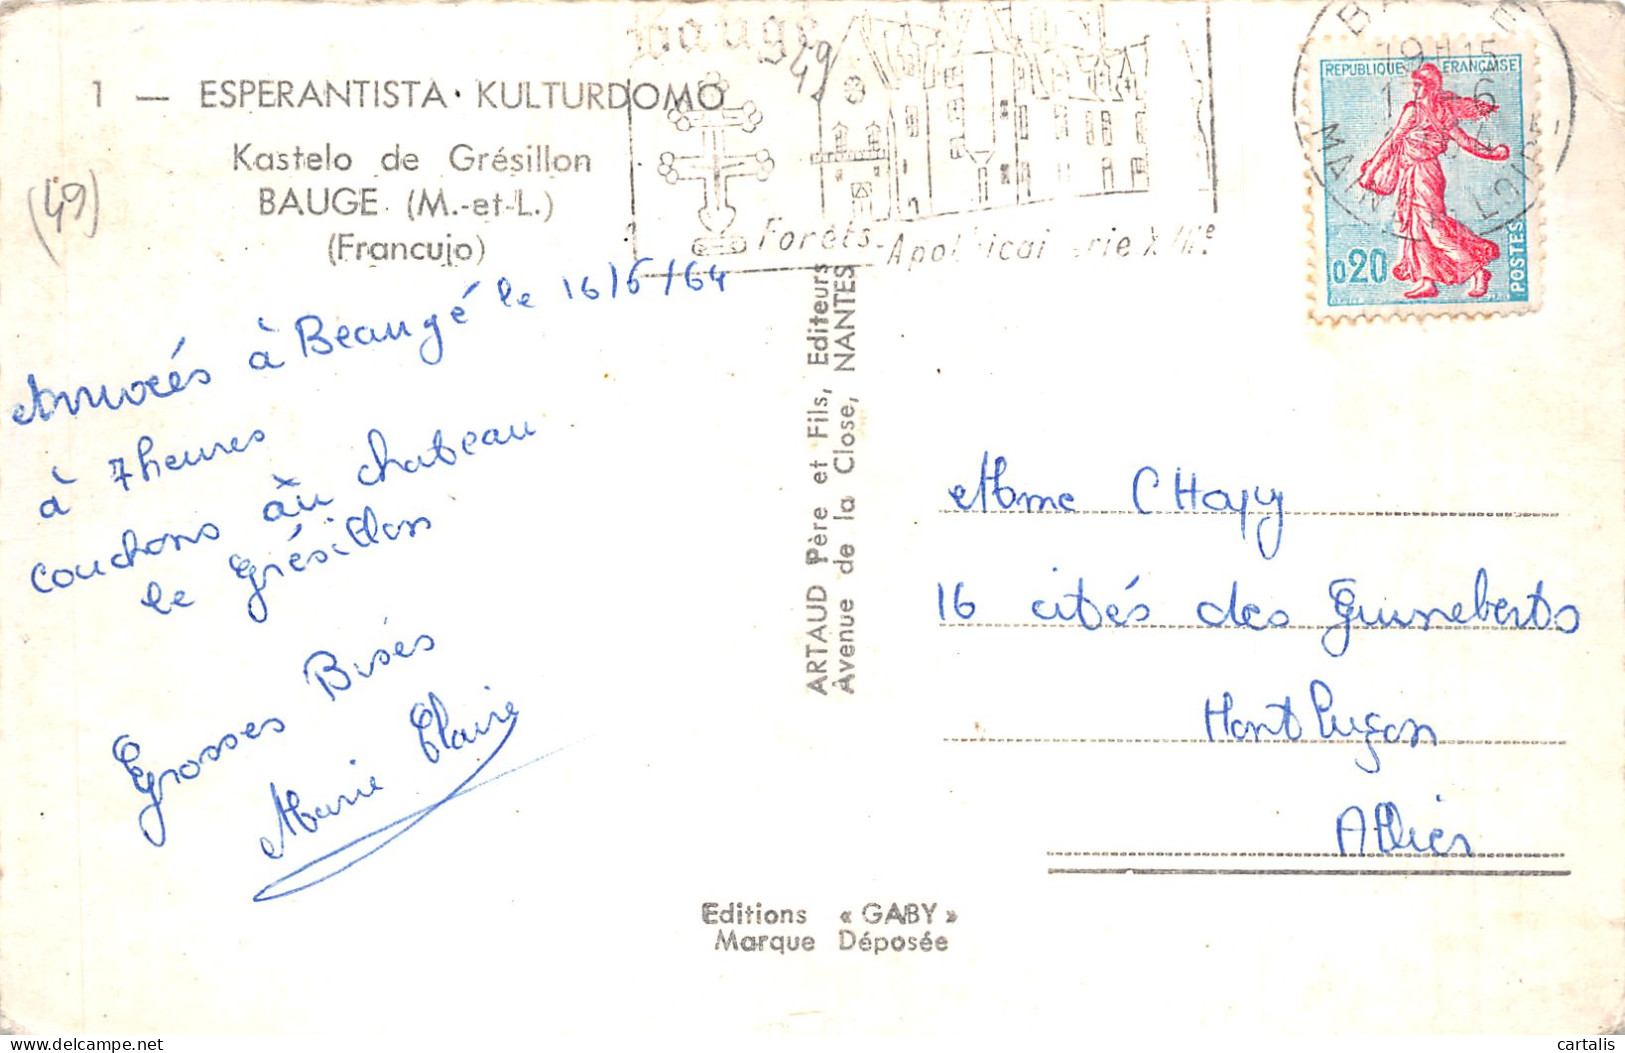 1 — ESPERANTISTA · KULTURDOMO
Kastelo de Grésillon
BAUGE (M.-et-L.)
(Francujo)
(49)
Baugé
49
Forêts - Apothicairerie XVIIe
REPUBLIQUE FRANÇAISE
0,20
POSTES
19H15
MAINE
LOIRE
Arrivés à Beaugé le 16/6/64
à 7 heures
couchons au chateau
le Grésillon
Grosses Bisés
Marie Claire
ARTAUD Père et Fils, Editeurs
Avenue de la Close, NANTES
Mme CHapy
16 cités des Guineberts
Mont Luçon
Allier
Editions « GABY »
Marque Déposée
cartalis
delcampe.net